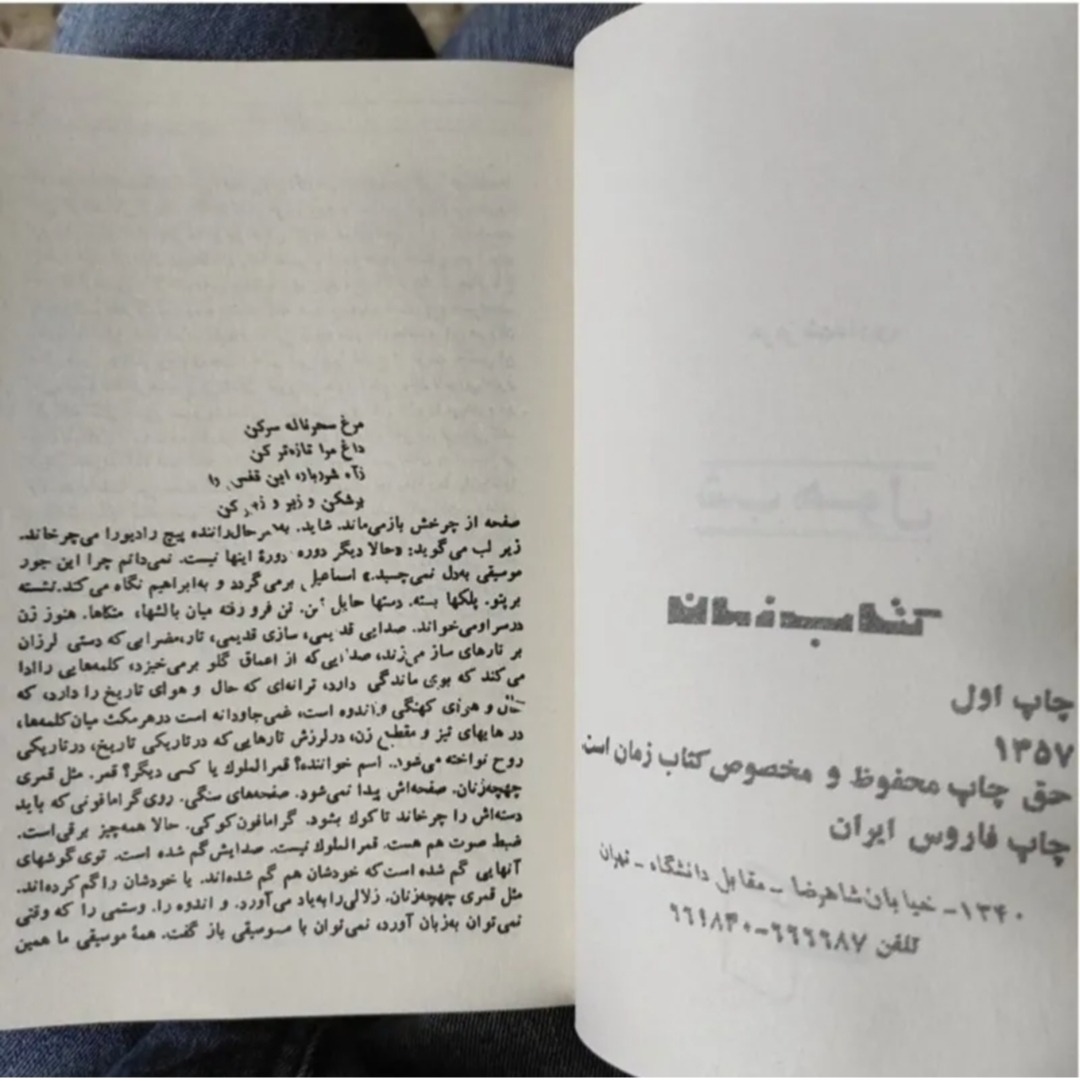 چاپ اول
۱۳۵۷
حق چاپ محفوظ و مخصوص کتاب زمان است
چاپ فاروس ایران
۱۳۴۰- خیابان شاهرضا - مقابل دانشگاه - تهران
تلفن ۶۶۶۶۸۷-۶۶۱۸۴۰
مرغ سحر ناله سرکن
داغ مرا تازه‌تر کن
زآه شرربار، این قفس را
برشکن و زیر و زبر کن
صفحه از چرخش بازمی‌ماند. شاید. به هرحال راننده پیچ رادیو را می‌چرخاند.
زیر لب می‌گوید: «حالا دیگر دوره دورهٔ اینها نیست. نمی‌دانم چرا این جور
موسیقی به‌دل نمی‌چسبد.» اسماعیل برمی‌گردد و به‌ابراهیم نگاه می‌کند. نشسته
برپتو. پلکها بسته. دستها حایل تن. تن فرو رفته میان بالشها، متکاها. هنوز زن
درسرا و می‌خواند. صدایی قدیمی، سازی قدیمی، تار، مضرابی که دستی لرزان
بر تارهای ساز می‌زند، صدایی‌که از اعماق گلو برمی‌خیزد، کلمه‌هایی را ادا
می‌کند که بوی ماندگی دارد، ترانه‌ای که حال و هوای تاریخ را دارد، که
حال و هوای کهنگی و اندوه است، غمی‌جاودانه است درهر مکث میان کلمه‌ها،
در هایهای تیز و مقطع زن، درلرزش تارهایی که درتاریکی تاریخ، درتاریکی
روح نواخته می‌شود. اسم خواننده؟ قمرالملوك یا کسی دیگر؟ قمر. مثل قمری
چهچه‌زنان. صفحه‌اش پیدا نمی‌شود. صفحه‌های سنگی. روی گرامافونی که باید
دسته‌اش را چرخاند تا کوك بشود. گرامافون کوکی. حالا همه‌چیز برقی‌است.
ضبط صوت هم هست. قمرالملوك نیست. صدایش گم شده است. توی گوشهای
آنهایی گم شده است‌که خودشان هم گم شده‌اند. یا خودشان را گم کرده‌اند.
مثل قمری چهچه‌زنان. زلالی را به‌یاد می‌آورد. و اندوه را. وستمی را که وقتی
نمی‌توان به‌زبان آورد، نمی‌توان با موسیقی باز گفت. همهٔ موسیقی ما همین